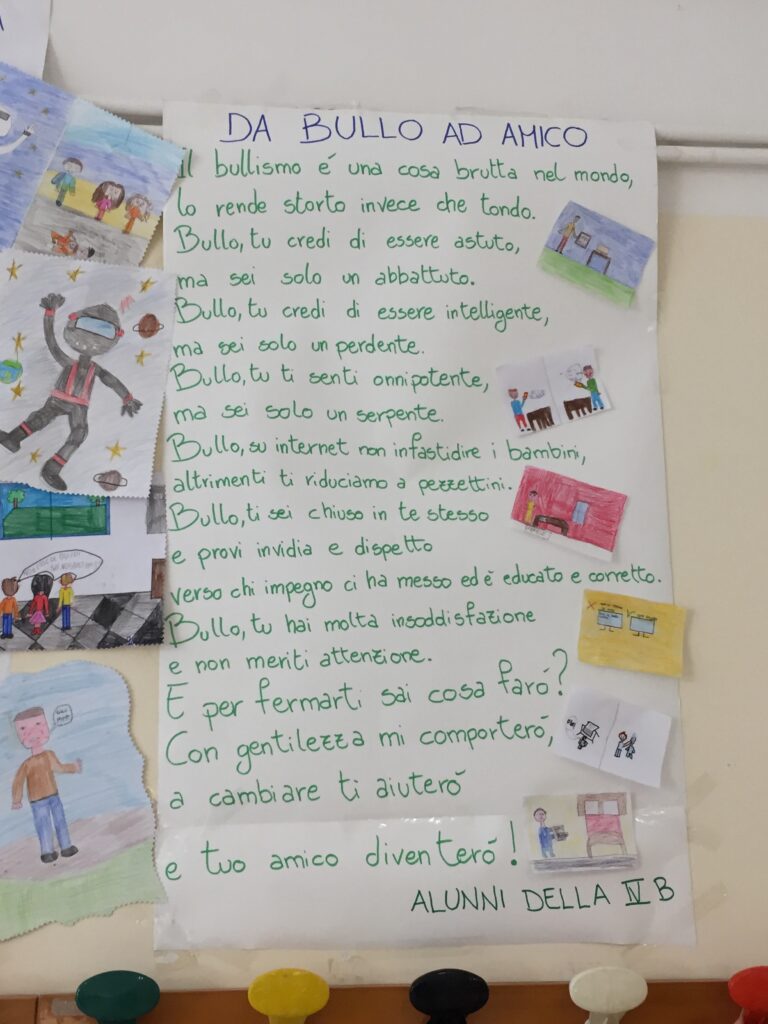 DA BULLO AD AMICO
il bullismo é una cosa brutta nel mondo,
lo rende storto invece che tondo.
Bullo, tu credi di essere astuto,
ma sei solo un abbattuto.
Bullo, tu credi di essere intelligente,
ma sei solo un perdente.
Bullo, tu ti senti onnipotente,
ma sei solo un serpente.
Bullo, su internet non infastidire i bambini,
altrimenti ti riduciamo a pezzettini.
Bullo, ti sei chiuso in te stesso
e provi invidia e dispetto
verso chi impegno ci ha messo ed é educato e corretto.
Bullo, tu hai molta insoddisfazione
e non meriti attenzione.
E per fermarti sai cosa faró?
Con gentilezza mi comporteró,
a cambiare ti aiuteró
e tuo amico diventeró!
ALUNNI DELLA IV B